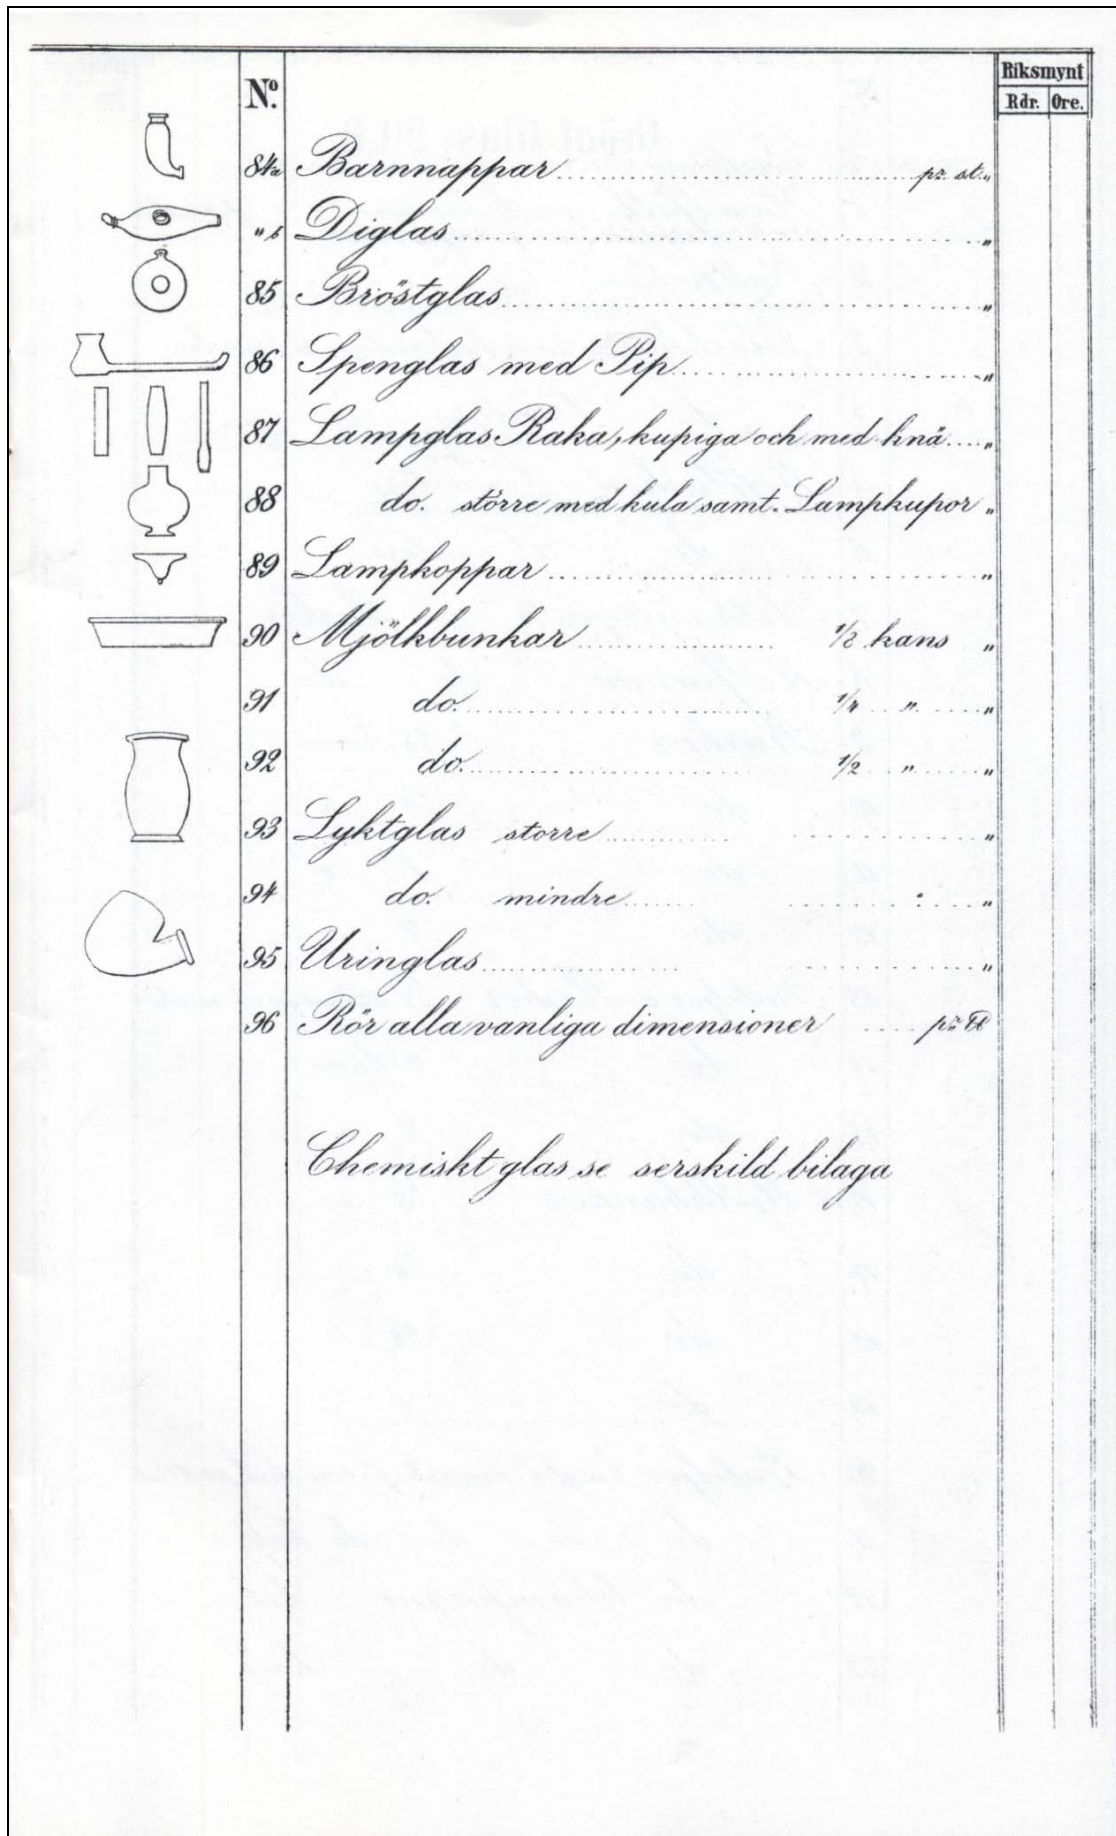 No. Riksmynt
Rdr. Öre.
84a Barnnappar pr. st. „
„ b Diglas „
85 Bröstglas „
86 Spenglas med Pip „
87 Lampglas Raka, kupiga och med knä „
88 do. större med kula samt. Lampkupor „
89 Lampkoppar „
90 Mjölkbunkar 1/8 kans „
91 do. 1/4 „ „
92 do. 1/2 „ „
93 Lyktglas storre „
94 do. mindre „
95 Uringlas „
96 Rör alla vanliga dimensioner pr
Chemiskt glas se serskild bilaga